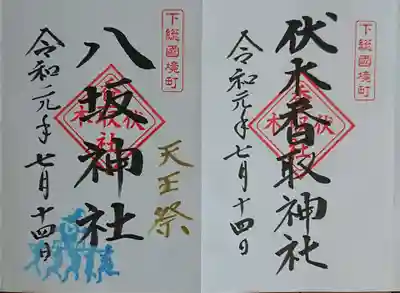 下総國境町
八坂神社
天王祭
令和元年七月十四日
下総國境町
伏木香取神社
令和元年七月十四日